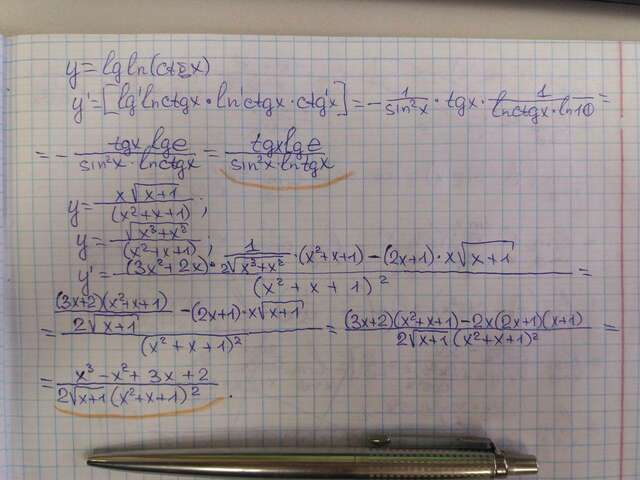 y = lg ln(ctgx)
y' = [lg'lnctgx · ln'ctgx · ctg'x] = - 1/sin²x · tgx · 1/(lnctgx · ln10) =
= - tgx lge/(sin²x · lnctgx) = tgx lge/(sin²x · lntgx)
y = x√(x+1)/(x²+x+1);
y = √(x³+x²)/(x²+x+1);
y' = ((3x²+2x) · 1/(2√(x³+x²)) · (x²+x+1) - (2x+1) · x√(x+1))/(x²+x+1)² =
= ((3x+2)(x²+x+1)/(2√(x+1)) - (2x+1) · x√(x+1))/(x²+x+1)² = ((3x+2)(x²+x+1) - 2x(2x+1)(x+1))/(2√(x+1) (x²+x+1)²) =
= (x³ - x² + 3x + 2)/(2√(x+1) (x²+x+1)²).